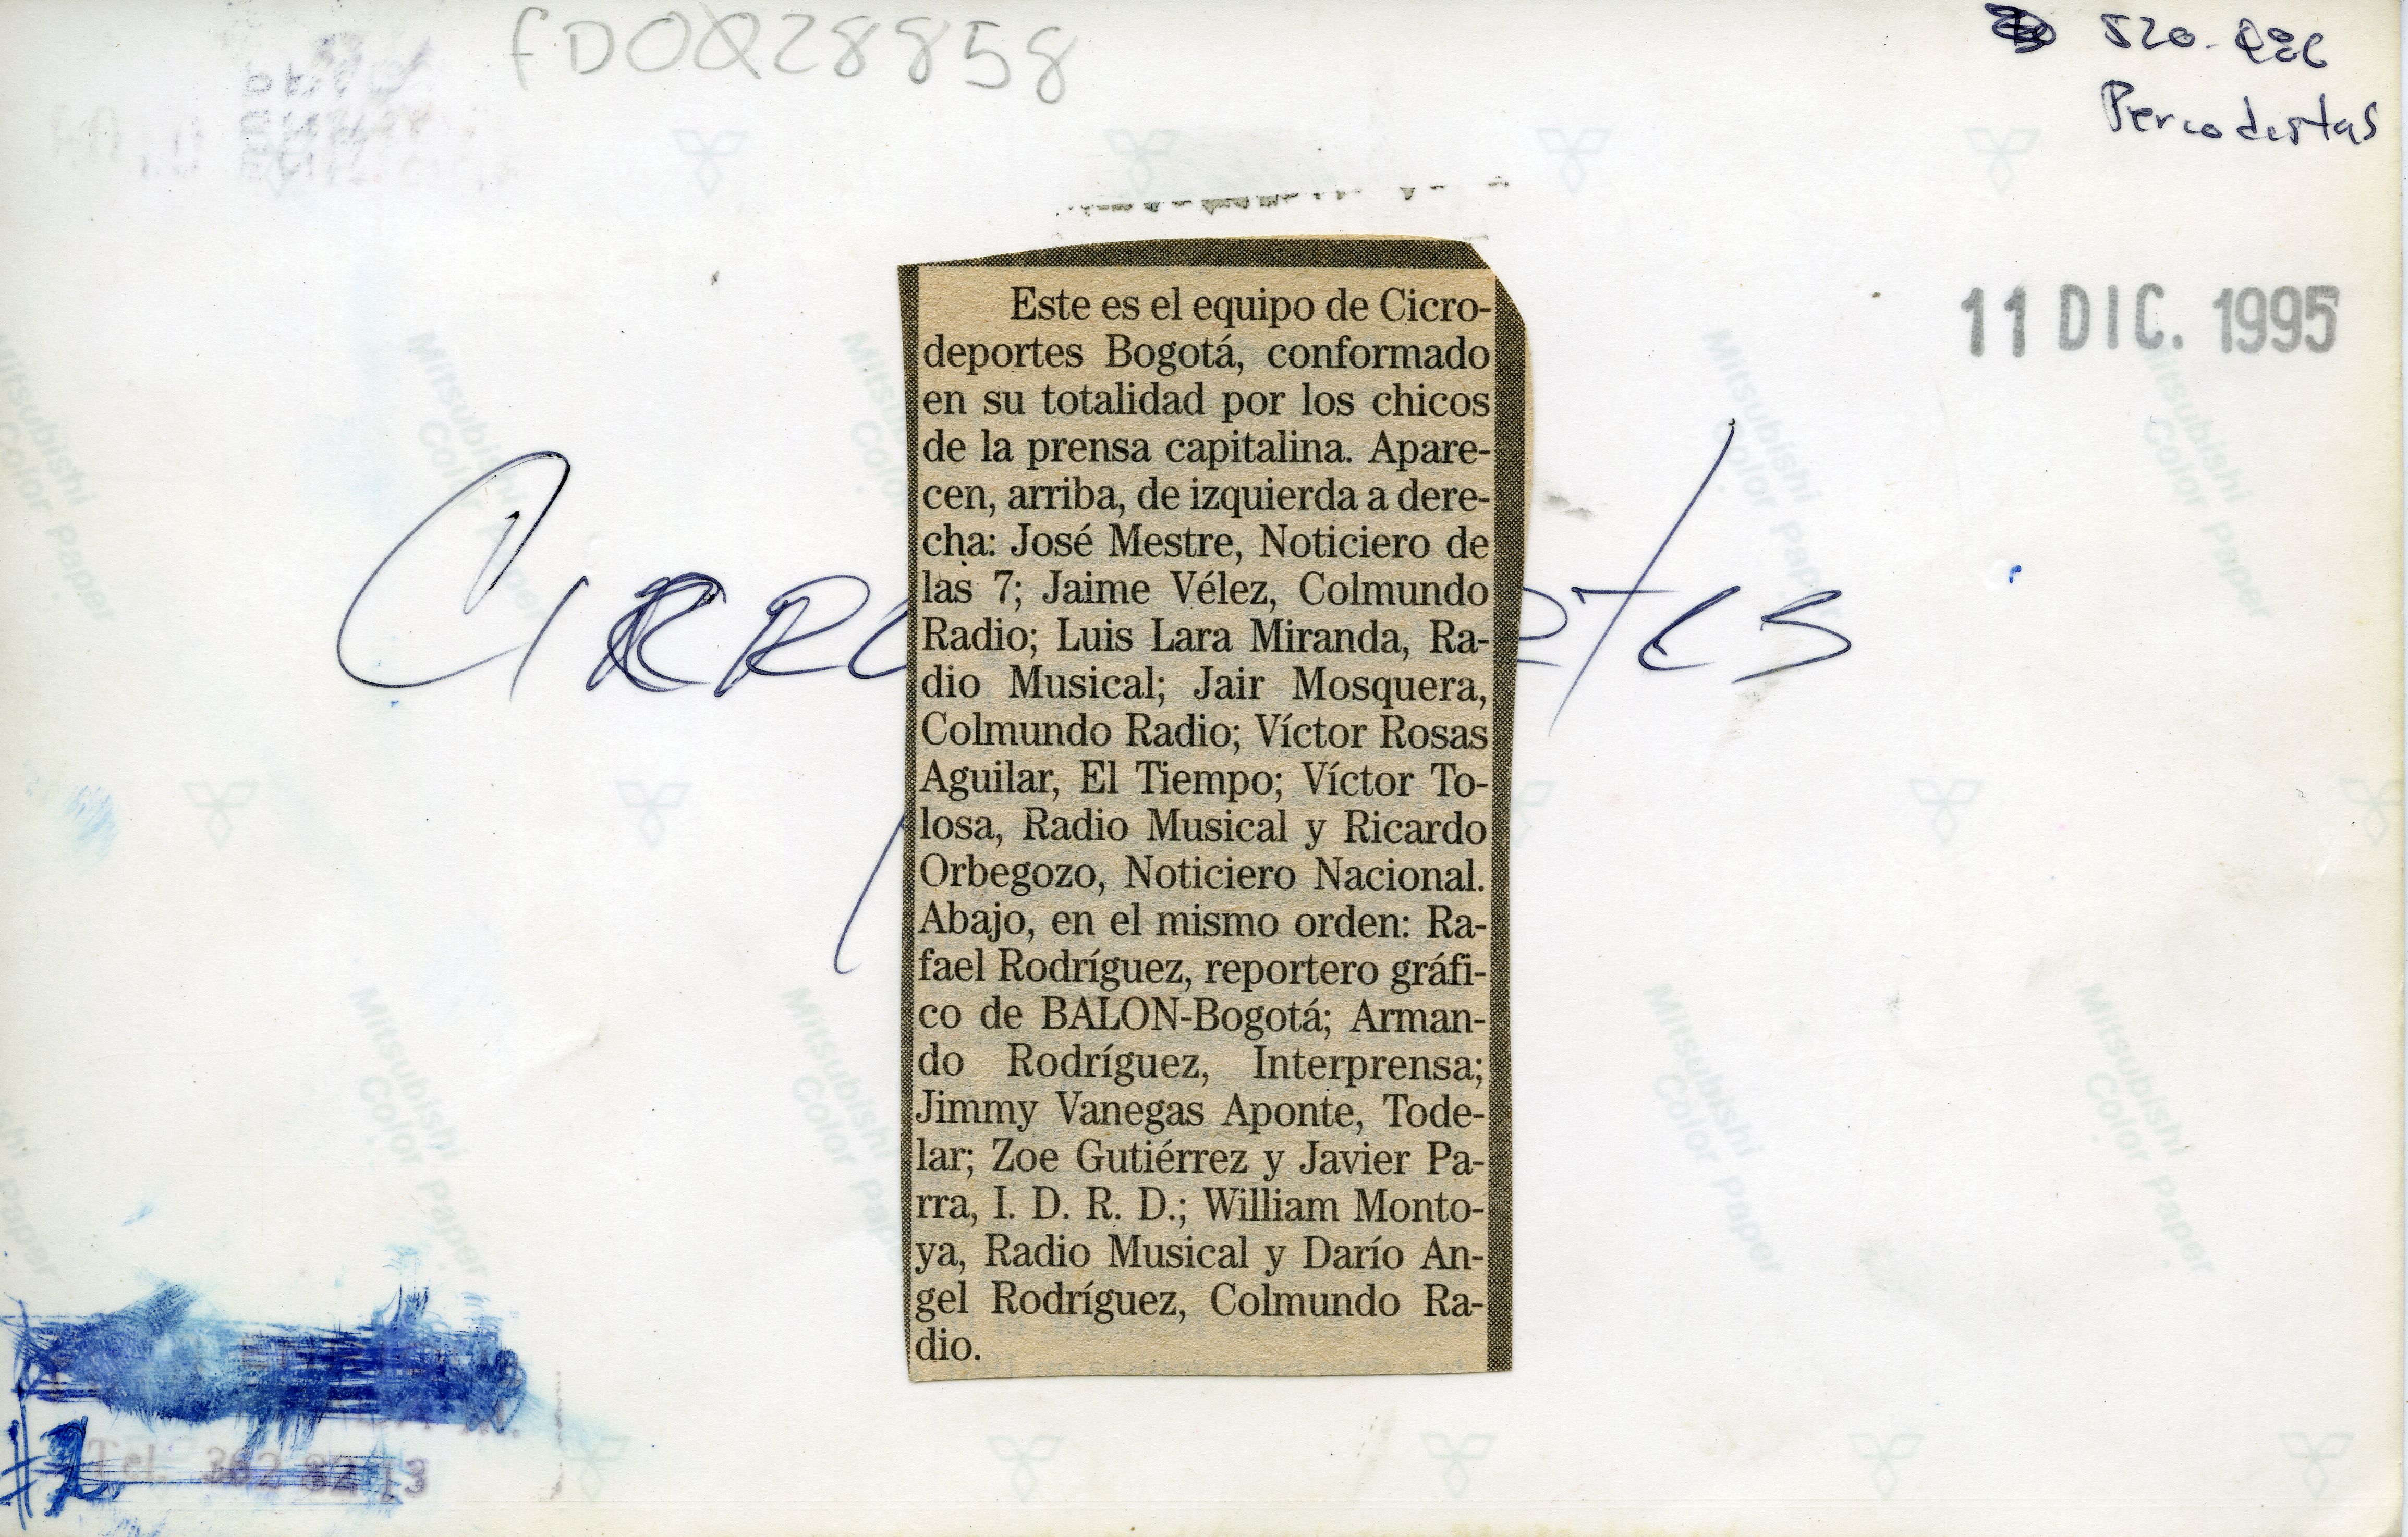 fDOQ28858
520.
Periodistas
11 DIC. 1995
Este es el equipo de Cicro-
deportes Bogotá, conformado
en su totalidad por los chicos
de la prensa capitalina. Apare-
cen, arriba, de izquierda a dere-
cha: José Mestre, Noticiero de
las 7; Jaime Vélez, Colmundo
Radio; Luis Lara Miranda, Ra-
dio Musical; Jair Mosquera,
Colmundo Radio; Víctor Rosas
Aguilar, El Tiempo; Víctor To-
losa, Radio Musical y Ricardo
Orbegozo, Noticiero Nacional.
Abajo, en el mismo orden: Ra-
fael Rodríguez, reportero gráfi-
co de BALON-Bogotá; Arman-
do Rodríguez, Interprensa;
Jimmy Vanegas Aponte, Tode-
lar; Zoe Gutiérrez y Javier Pa-
rra, I. D. R. D.; William Monto-
ya, Radio Musical y Darío An-
gel Rodríguez, Colmundo Ra-
dio.
Mitsubishi
Color Paper
#2
Tel.